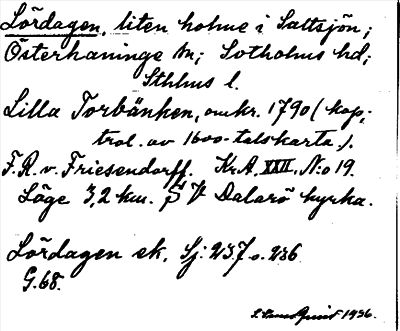 Lördagen, liten holme i Saltsjön;
Österhaninge sn; Sotholms hd;
Sthlms l.
Lilla Torbänken, omkr. 1790 (kop;
trol. av 1600-talskarta).
F. R. v. Friesendorff. Kr.A. XXII. N:o 19.
Läge 3,2 km. S V Dalarö kyrka.
Lördagen ek. Sj: 237 o. 236
G. 68.
1936.